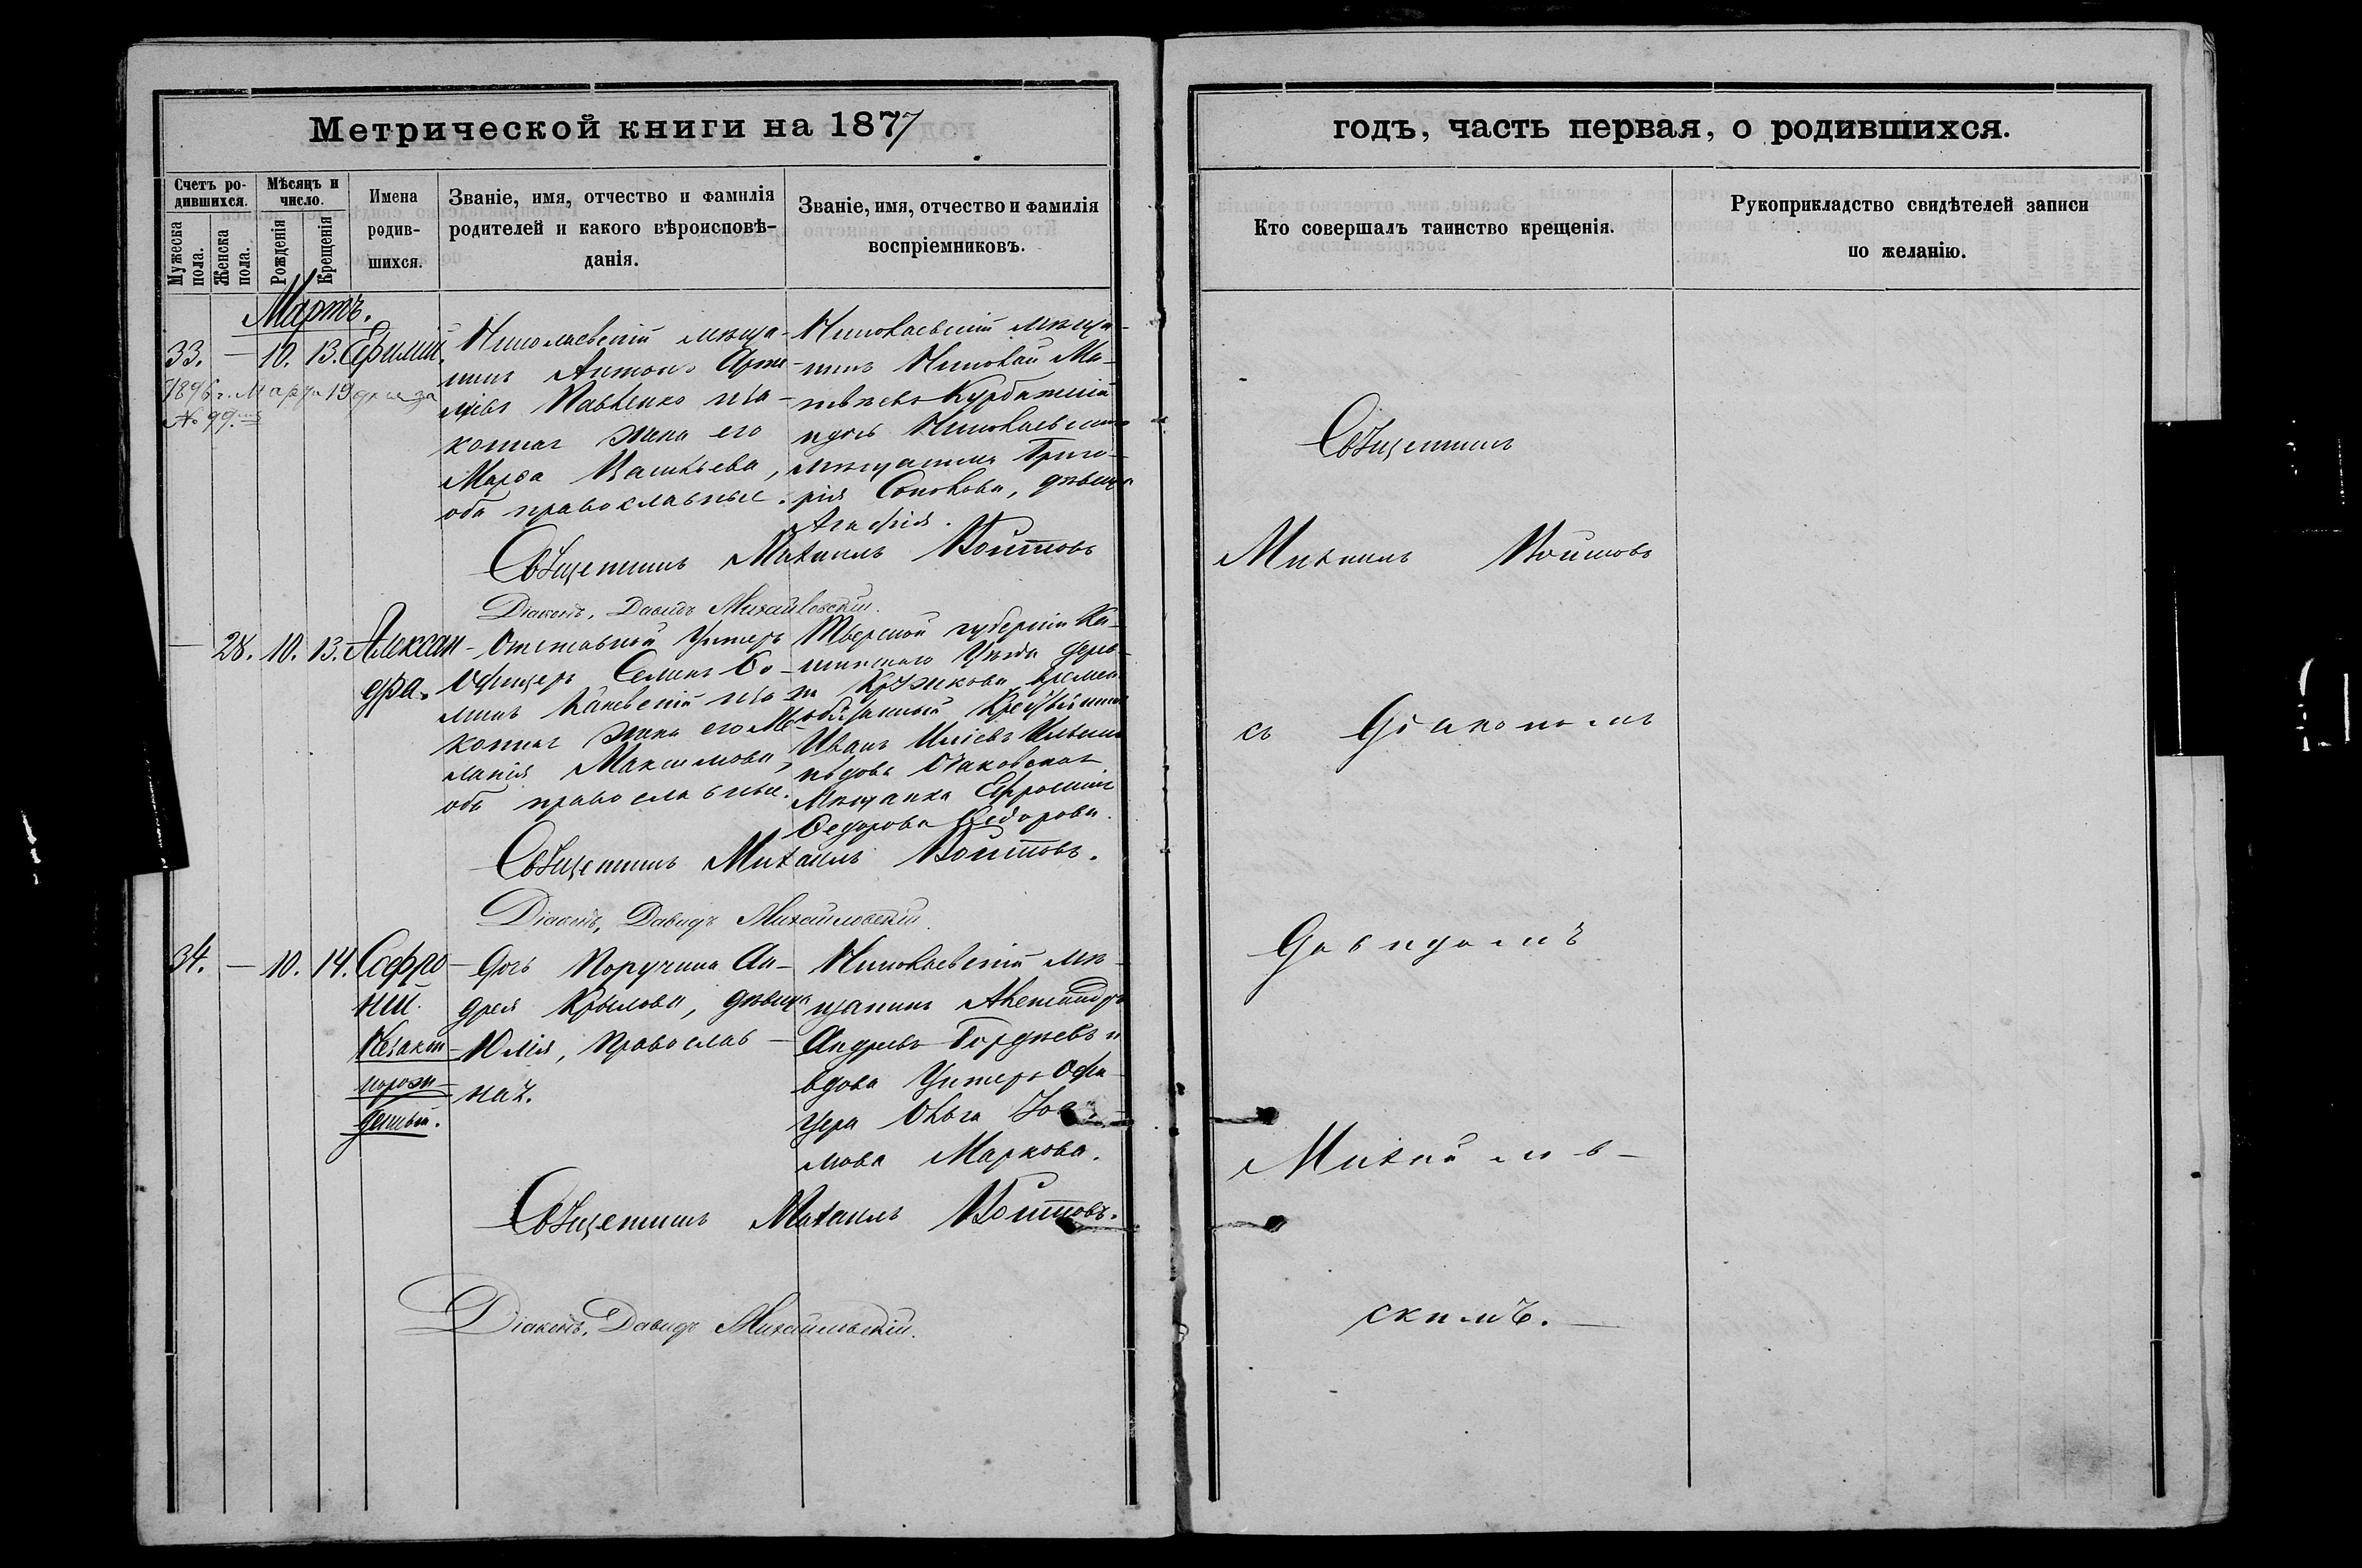 Метрической книги на 1877
Счетъ ро-
дившихся.
Мужеска
пола.
Женска
пола.
Мѣсяцъ и
число.
Рожденія
Крещенія
Имена
родив-
шихся.
Званіе, имя, отчество и фамилія
родителей и какого вѣроисповѣ-
данія.
Званіе, имя, отчество и фамилія
воспріемниковъ.
Мартъ.
33. — 10. 13. Ефимій.
1896 г. Марта 19 дня за
№ 99.
Николаевскій мѣща-
нинъ Антонъ Арте-
міевъ Павленко и за-
конная жена его
Марѳа Васильева,
оба православные.
Николаевскій мѣща-
нинъ Николай Ма-
твѣевъ Курбатскій
и дочь Николаевскаго
мѣщанина Григо-
рія Соколова, дѣвица
Агафія.
Священникъ Михаилъ Войтовъ
Діаконъ, Давидъ Михайловскій.
— 28. 10. 13. Алексан-
дра.
Отставной Унтеръ
Офицеръ Семенъ
Каневскій и за-
конная жена его Ме-
ланія Максимова,
оба православные.
Тверской губерніи Ка-
шинскаго Уѣзда дерев-
ни времен.
обязанный Крестьянинъ
Иванъ Иліевъ Ильинъ
и вдова Очаковская
Мѣщанка Ефросинія
Ѳедорова Ѳедорова.
Священникъ Михаилъ Войтовъ.
Діаконъ, Давидъ Михайловскій.
34. — 10. 14. Софро-
ній.
Незакон-
норож-
денный.
Дочь Поручика Ан-
дрея Крылова, дѣвица
Юлія, Православ-
ная.
Николаевскій мѣ-
щанинъ Александръ
Андреевъ Гордѣевъ и
вдова Унтеръ Офи-
цера Ольга
мова Маркова.
Священникъ Михаилъ Войтовъ.
Діаконъ, Давидъ Михайловскій.
годъ, часть первая, о родившихся.
Кто совершалъ таинство крещенія.
Рукоприкладство свидѣтелей записи
по желанію.
Священникъ
Михаилъ Войтовъ
съ Діакономъ
Давидомъ
Михайлов-
скимъ.